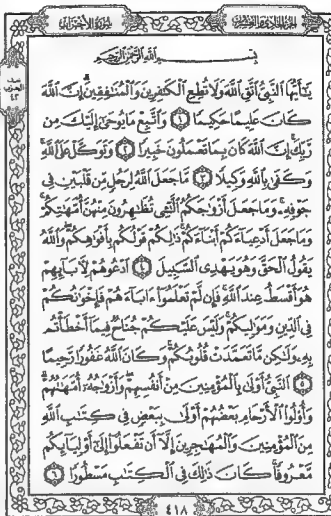 الجزء الحادي والعشرون
سورة الأحزاب
بِسْمِ اللَّهِ الرَّحْمَنِ الرَّحِيمِ
يَا أَيُّهَا النَّبِيُّ اتَّقِ اللَّهَ وَلَا تُطِعِ الْكَافِرِينَ وَالْمُنَافِقِينَ إِنَّ اللَّهَ
كَانَ عَلِيمًا حَكِيمًا ١ وَاتَّبِعْ مَا يُوحَى إِلَيْكَ مِن
رَّبِّكَ إِنَّ اللَّهَ كَانَ بِمَا تَعْمَلُونَ خَبِيرًا ٢ وَتَوَكَّلْ عَلَى اللَّهِ
وَكَفَى بِاللَّهِ وَكِيلًا ٣ مَّا جَعَلَ اللَّهُ لِرَجُلٍ مِّن قَلْبَيْنِ فِي
جَوْفِهِ وَمَا جَعَلَ أَزْوَاجَكُمُ اللَّائِي تُظَاهِرُونَ مِنْهُنَّ أُمَّهَاتِكُمْ
وَمَا جَعَلَ أَدْعِيَاءَكُمْ أَبْنَاءَكُمْ ذَلِكُمْ قَوْلُكُم بِأَفْوَاهِكُمْ وَاللَّهُ
يَقُولُ الْحَقَّ وَهُوَ يَهْدِي السَّبِيلَ ٤ ادْعُوهُمْ لِآبَائِهِمْ
هُوَ أَقْسَطُ عِندَ اللَّهِ فَإِن لَّمْ تَعْلَمُوا آبَاءَهُمْ فَإِخْوَانُكُمْ
فِي الدِّينِ وَمَوَالِيكُمْ وَلَيْسَ عَلَيْكُمْ جُنَاحٌ فِيمَا أَخْطَأْتُم
بِهِ وَلَكِن مَّا تَعَمَّدَتْ قُلُوبُكُمْ وَكَانَ اللَّهُ غَفُورًا رَّحِيمًا
٥ النَّبِيُّ أَوْلَى بِالْمُؤْمِنِينَ مِنْ أَنفُسِهِمْ وَأَزْوَاجُهُ أُمَّهَاتُهُمْ
وَأُولُو الْأَرْحَامِ بَعْضُهُمْ أَوْلَى بِبَعْضٍ فِي كِتَابِ اللَّهِ
مِنَ الْمُؤْمِنِينَ وَالْمُهَاجِرِينَ إِلَّا أَن تَفْعَلُوا إِلَى أَوْلِيَائِكُم
مَّعْرُوفًا كَانَ ذَلِكَ فِي الْكِتَابِ مَسْطُورًا ٦
٤١٨